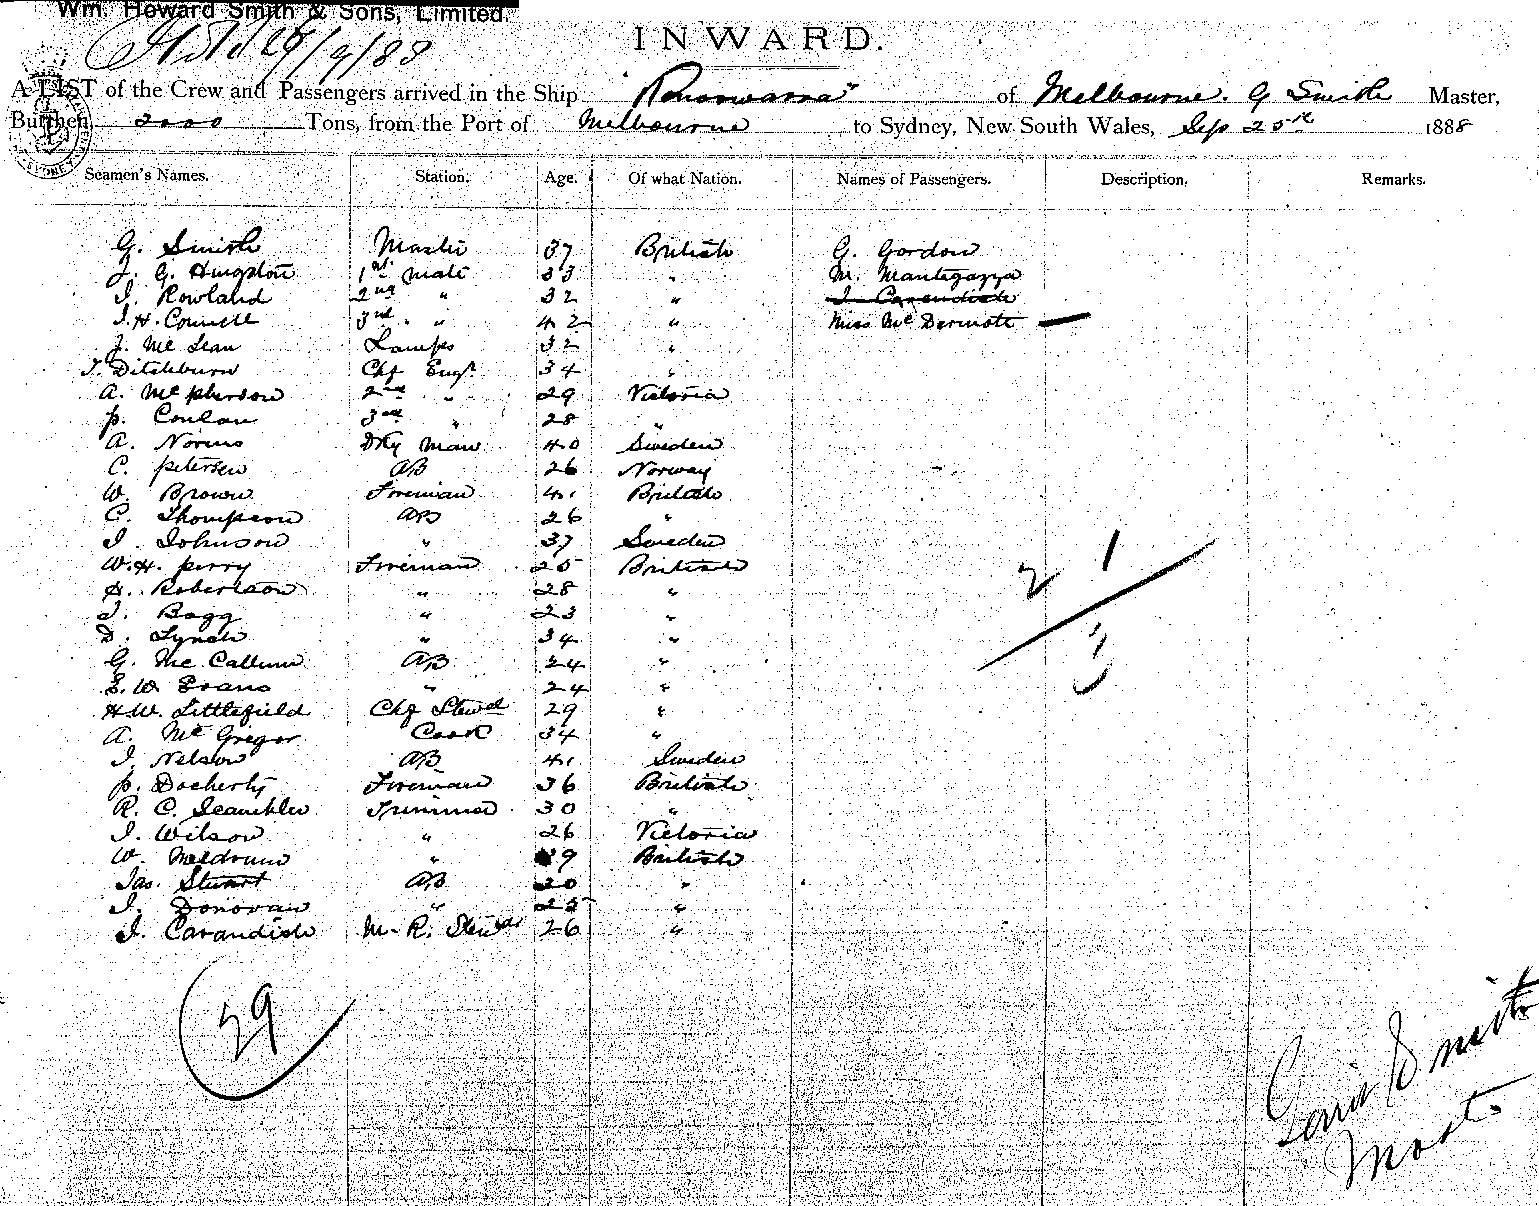 Wm. Howard Smith & Sons, Limited.
INWARD.
A LIST of the Crew and Passengers arrived in the Ship "Konoowarra" of Melbourne. G Smith Master,
Burthen 2000 Tons, from the Port of Melbourne to Sydney, New South Wales, Sep 25th 1888
Seamen's Names. Station. Age. Of what Nation. Names of Passengers. Description. Remarks.
G. Smith Master 37 British G. Gordon
J. G. Hingston 1st Mate 33 " M. Mantegazza
J. Rowland 2nd " 32 " J. Cavendish
J. H. Connell 3rd " 42 " Miss McDermott
J. McLean Lamps 32 "
T. Ditchburn Chf Engr 34 "
A. McPherson 2nd " 29 Victoria
P. Conlan 3rd " 28 "
A. Norino Dky Man 40 Sweden
C. Petersen AB 26 Norway
W. Brown Fireman 41 British
C. Thompson AB 26 "
J. Johnson " 37 Sweden
W. H. Perry Fireman 25 British
H. Robertson " 28 "
J. Bagg " 23 "
D. Lynch " 34 "
G. McCallum AB 24 "
E. W. Evans " 24 "
H. W. Littlefield Chf Stewd 29 "
A. McGregor Cook 34 "
J. Nelson AB 41 Sweden
P. Docherty Fireman 36 British
R. C. Scambler Trimmer 30 "
J. Wilson " 26 Victoria
W. Meldrum " 39 British
Jas. Stewart AB 20 "
J. Donovan " 25 "
J. Cavandish M. R. Steward 26 "
2 1
29
Smith
Master